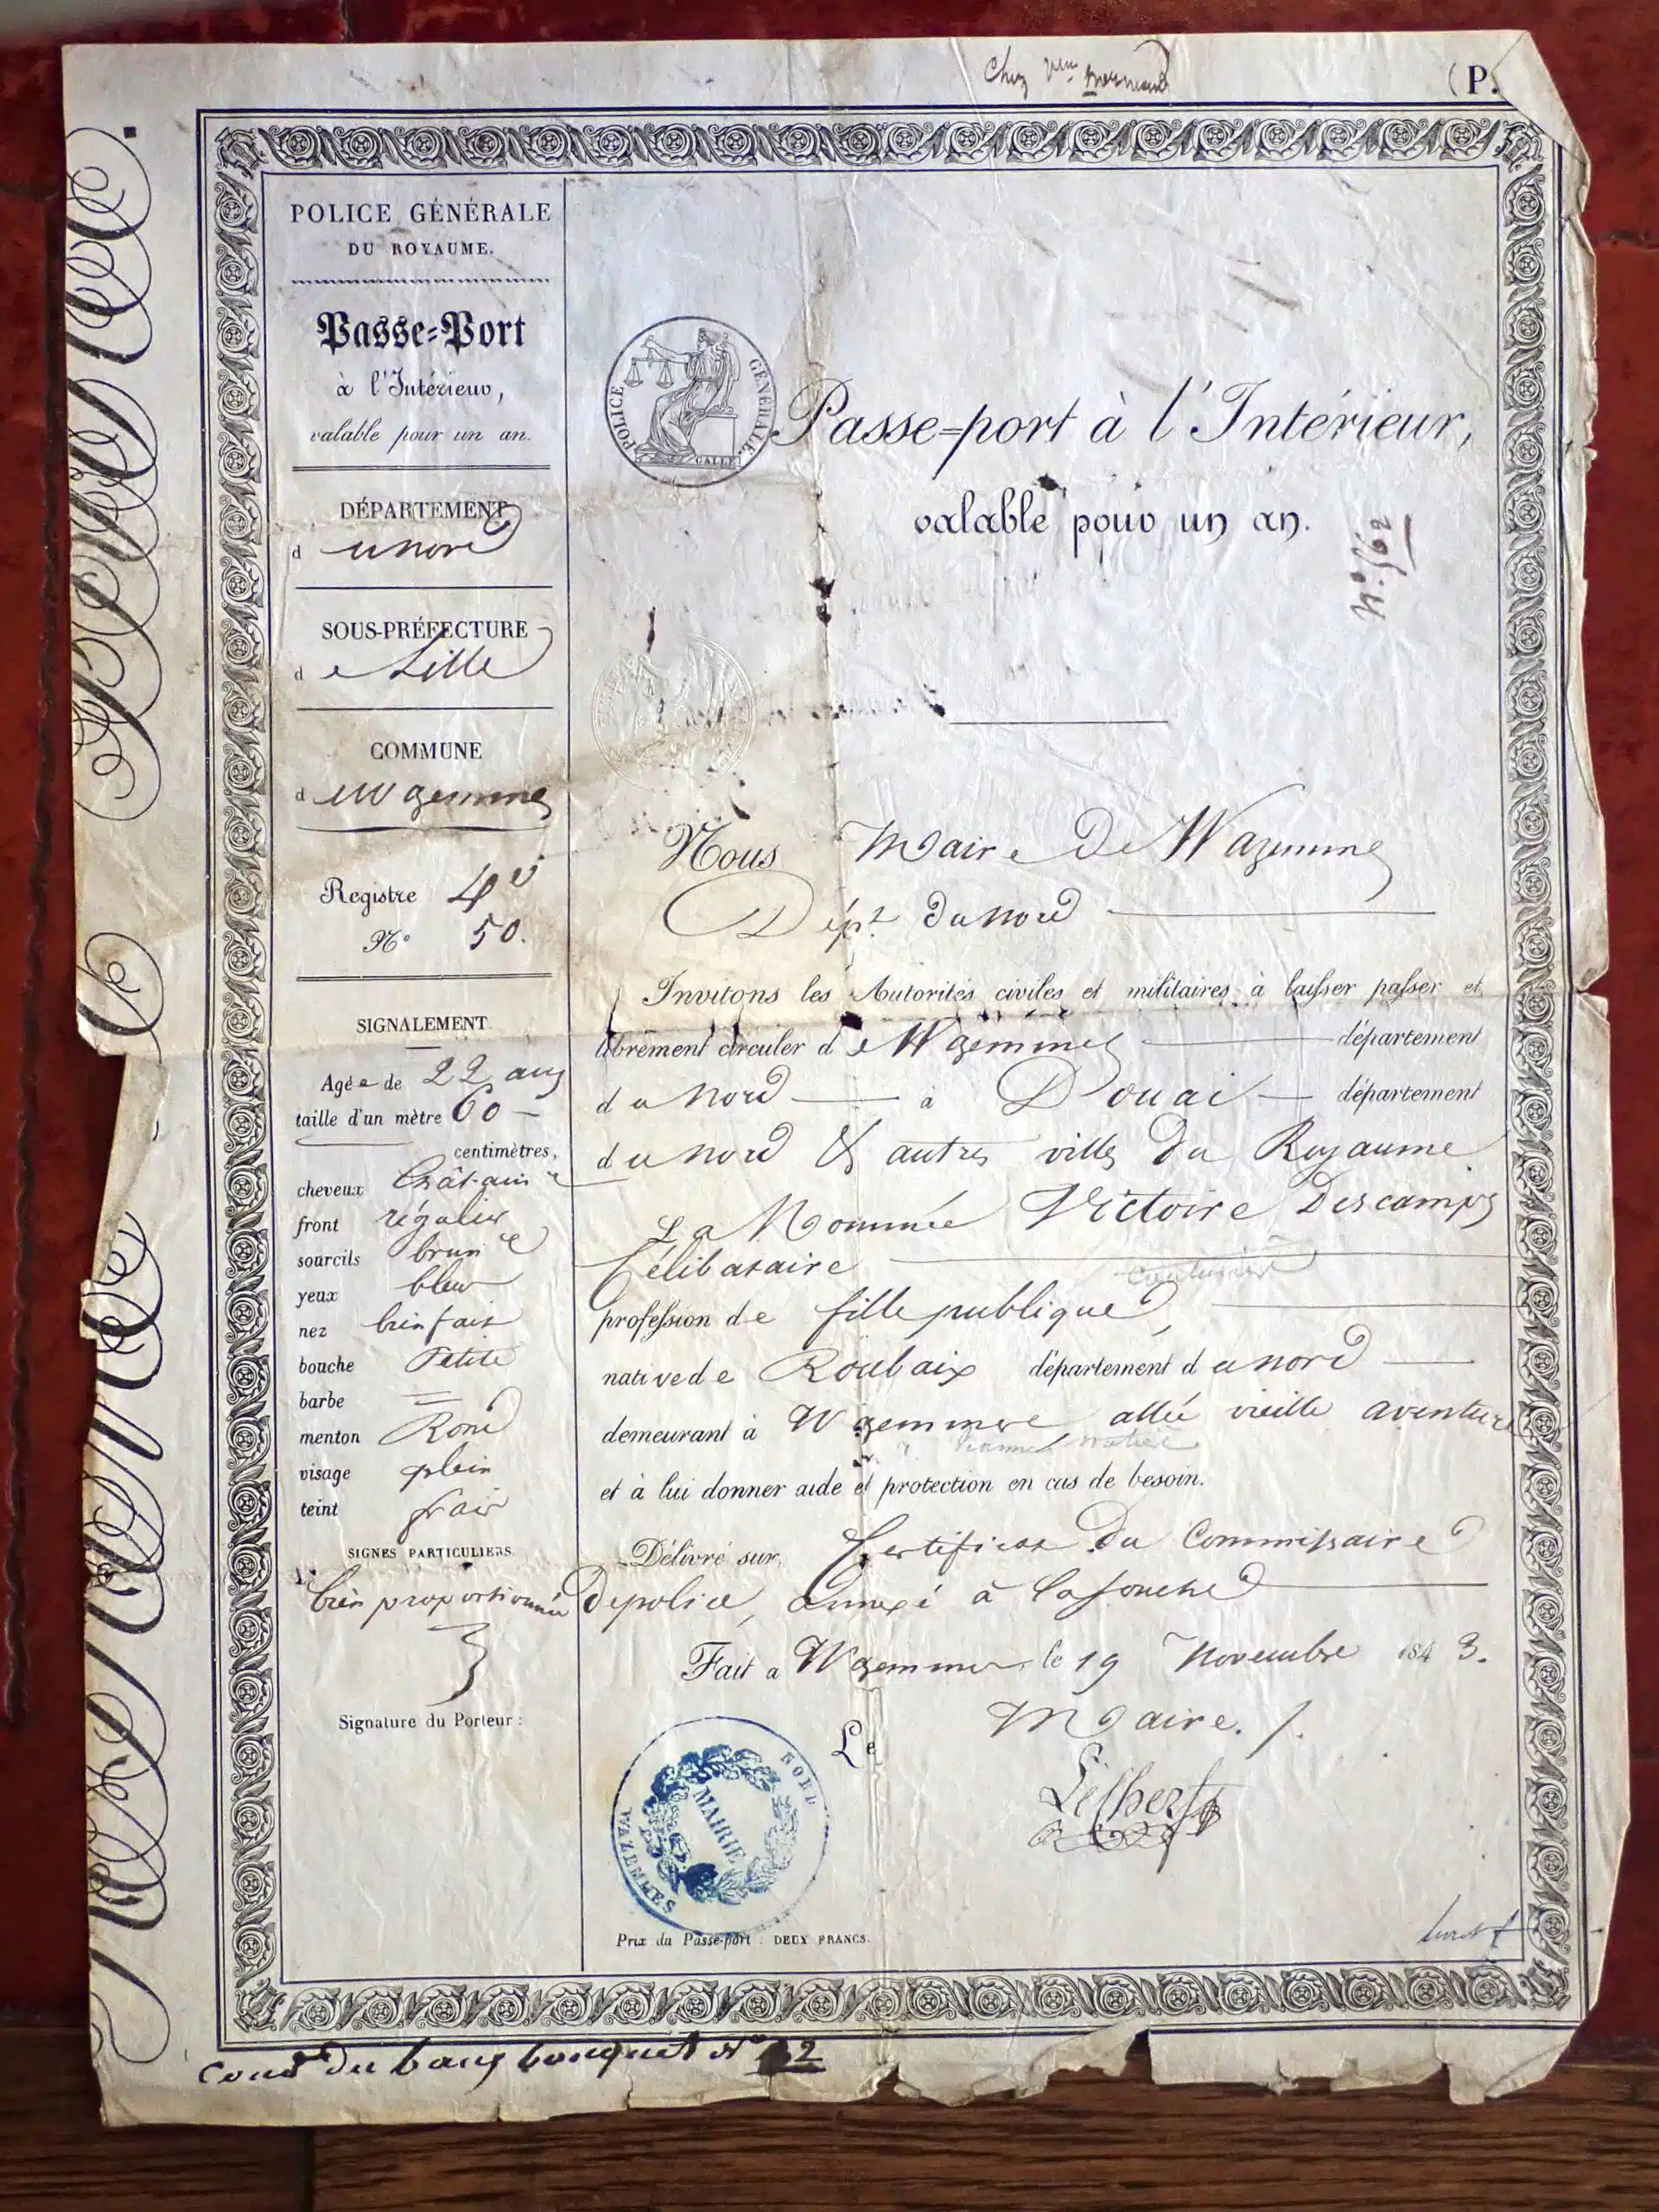 Chez
(P.
POLICE GÉNÉRALE
DU ROYAUME.
Passe=Port
à l'Intérieur,
valable pour un an.
DÉPARTEMENT
d u nord
SOUS-PRÉFECTURE
d e Lille
COMMUNE
d e Wazemmes
Registre 4e
No 50.
SIGNALEMENT
Agée de 22 ans
taille d'un mètre 60 —
centimètres,
cheveux Chât-ain
front régulier
sourcils brun
yeux bleu
nez bien fait
bouche Petite
barbe =
menton Rond
visage plein
teint frais
SIGNES PARTICULIERS.
bien proportionnée
Signature du Porteur :
POLICE GÉNÉRALE.
GALLE
Passe=port à l'Intérieur,
valable pour un an.
No. 562
Nous Maire De Wazemmes
Dépt. du Nord
Invitons les Autorités civiles et militaires à laisser passer et
librement circuler d e Wazemmes département
d u Nord à Douai département
d u Nord & autres villes du Royaume
La Nommée Victoire Descamps
Célibataire
profession de fille publique,
native de Roubaix département d u nord
demeurant à Wazemmes allée vieille aventure
et à lui donner aide et protection en cas de besoin.
Délivré sur Certificat du Commissaire
de police, annexé à la souche
Fait a Wazemmes le 19 Novembre 1843.
Le Maire.
MAIRIE
WAZEMMES
NORD
Prix du Passe-port : DEUX FRANCS.
Cour du beau bouquet No 12